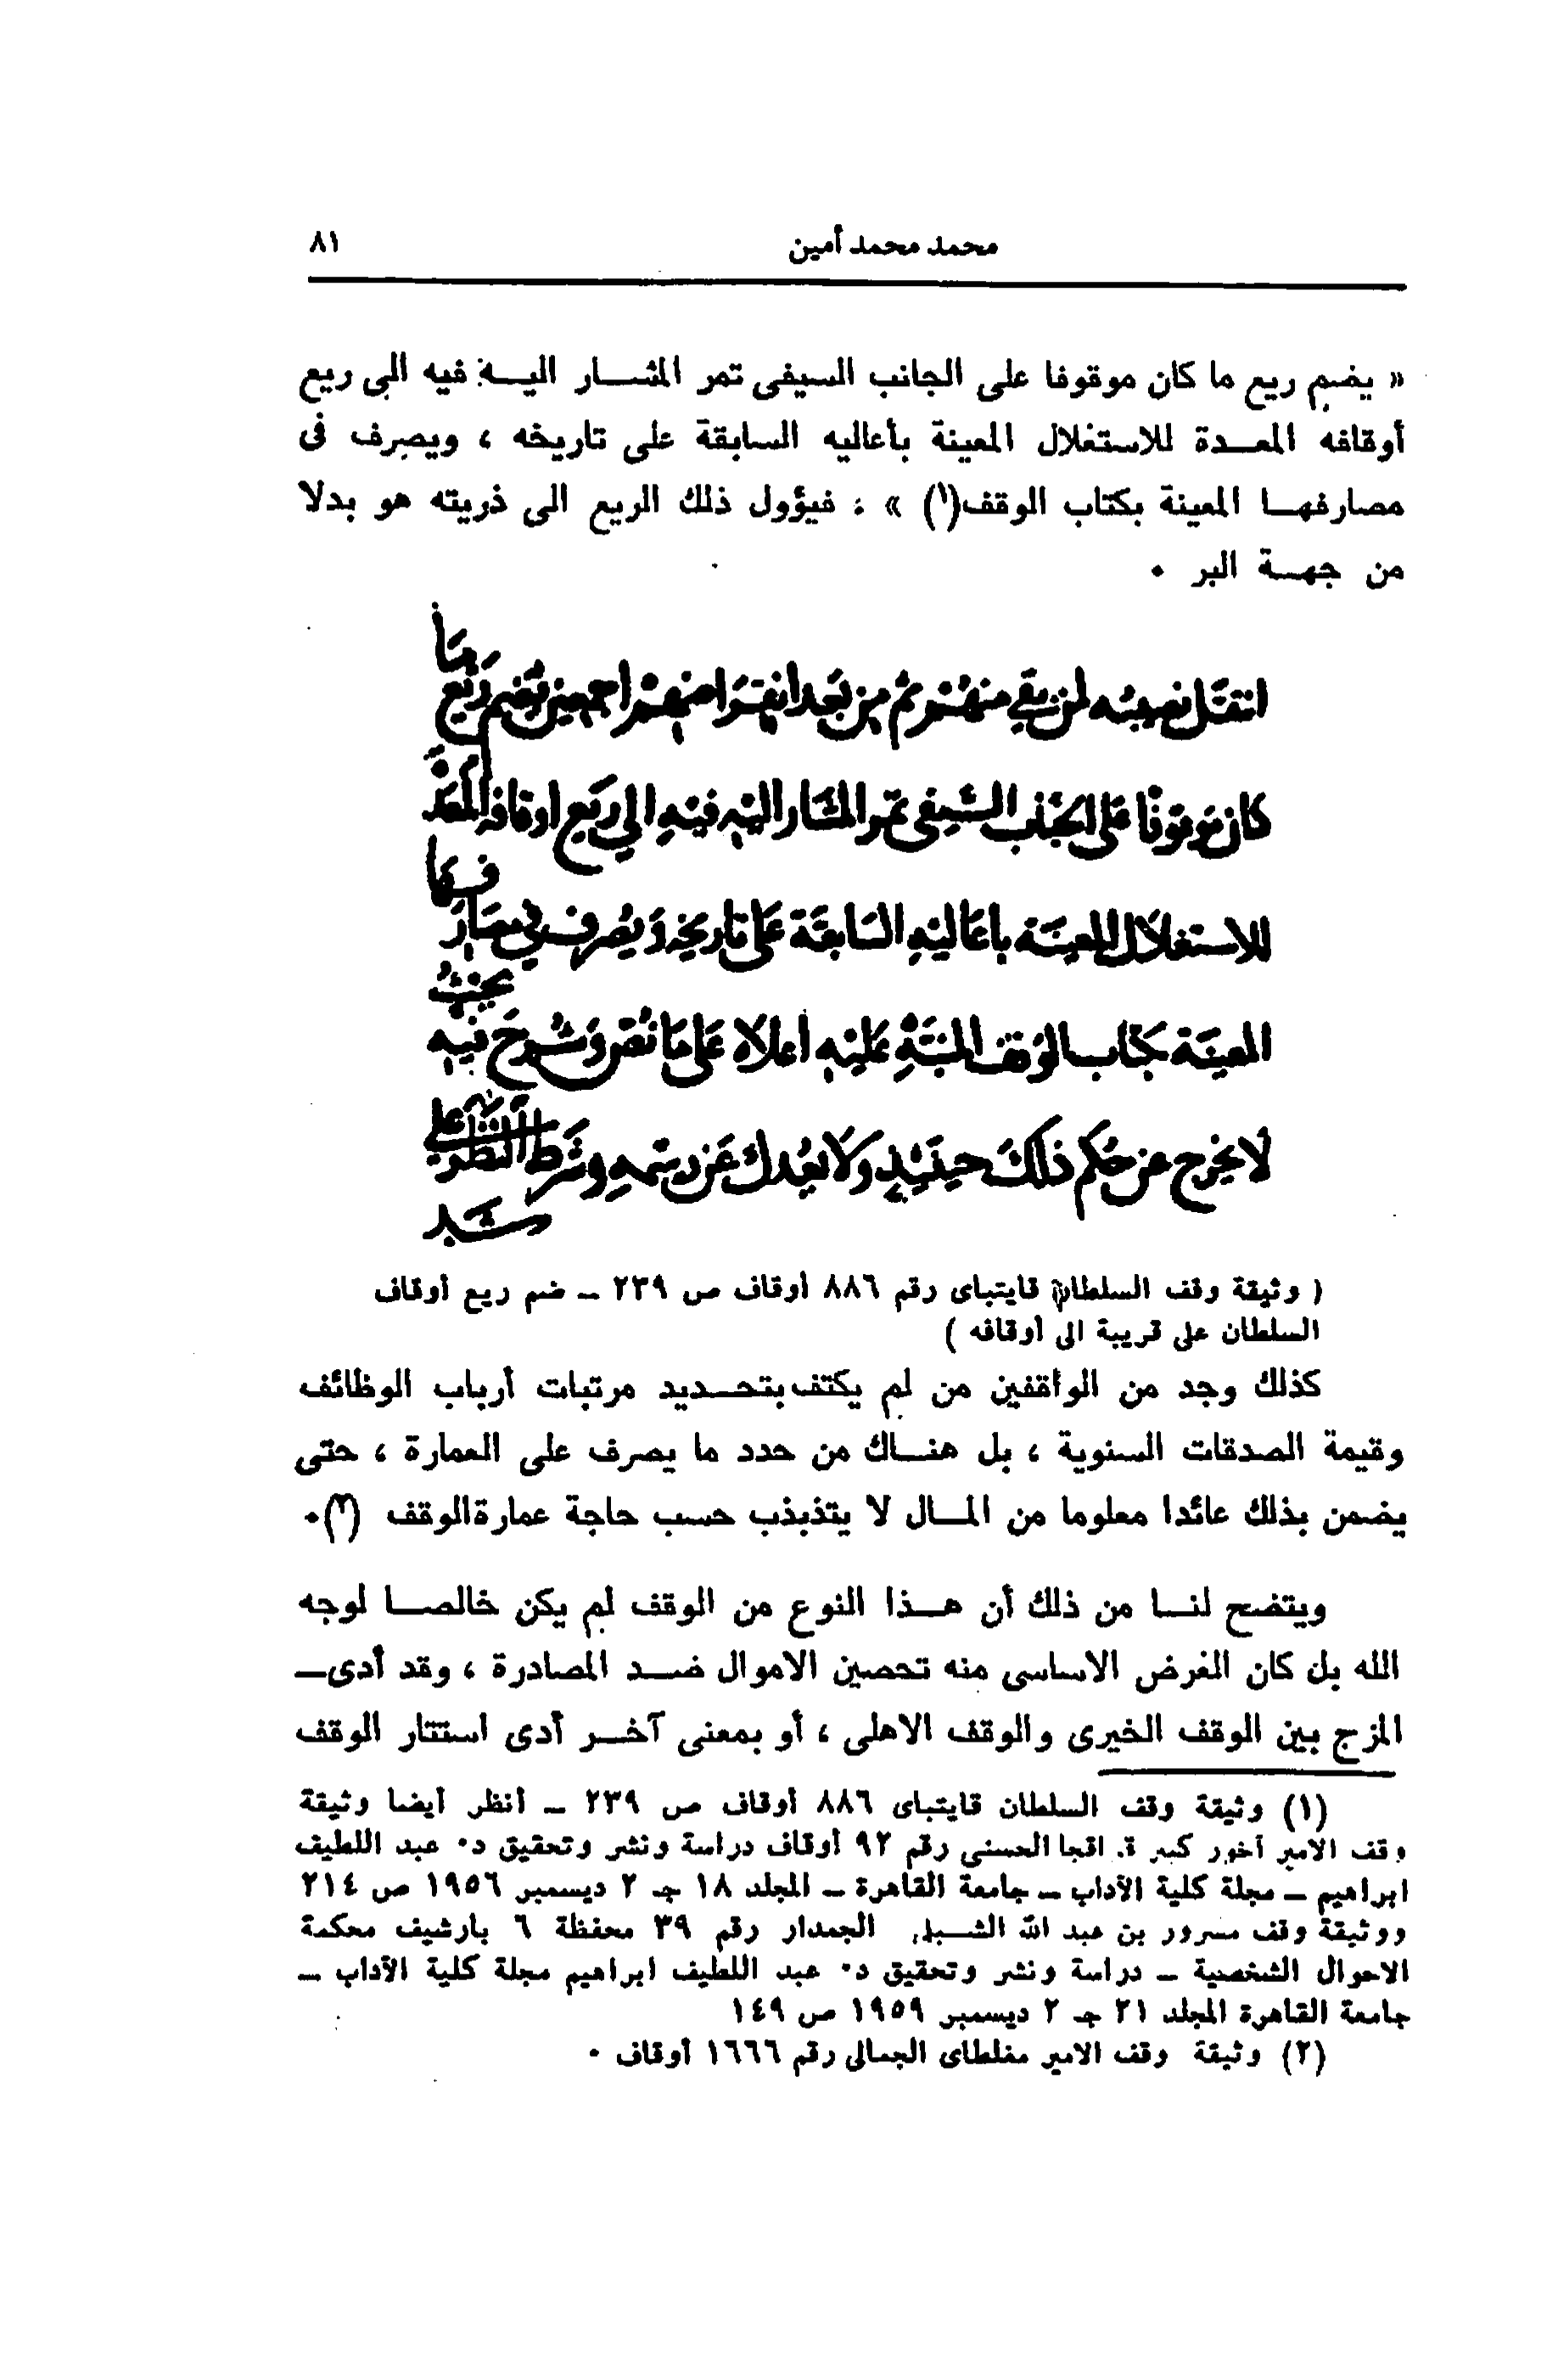 محمد محمد أمين ٨١
« يضم ريع ما كان موقوفا على الجانب السيفى تمر المشـــار اليــه فيه الى ريع
أوقافه المعــدة للاستغلال المعينة بأعاليه السابقة على تاريخه ، ويصرف فى
مصارفهــا المعينة بكتاب الوقف(١) » ، فيؤول ذلك الريع الى ذريته هو بدلا
من جهــة البر ٠
انتقل نصيبه لمن بقي منهم ثم من بعد انقراضهم اجمعين يضم ريع ما
كان موقوفا على الجانب السيفى تمر المشار اليه فيه الي ريع اوقافه المعدة
للاستغلال المعينة باعاليه السابقة على تاريخه ويصرف في مصارفها
المعينة بكتاب الوقف المنبه عليه اعلاه على ما نص وشرح فيه بحيث
لا يخرج عن حكم ذلك حينئذ ولا يعدل عن رسمه وشرط النظر على
( وثيقة وقف السلطان قايتباى رقم ٨٨٦ أوقاف ص ٢٣٩ – ضم ريع أوقاف
السلطان على قريبة الى أوقافه )
كذلك وجد من الواقفين من لم يكتف بتحــديد مرتبات أرباب الوظائف
وقيمة الصدقات السنوية ، بل هنــاك من حدد ما يصرف على العمارة ، حتى
يضمن بذلك عائدا معلوما من المــال لا يتذبذب حسب حاجة عمارةالوقف (٢)٠
ويتضح لنــا من ذلك أن هــذا النوع من الوقف لم يكن خالصــا لوجه
الله بل كان الغرض الاساسى منه تحصين الاموال ضــد المصادرة ، وقد أدى—
المزج بين الوقف الخيرى والوقف الاهلى ، أو بمعنى آخــر أدى استتار الوقف
(١) وثيقة وقف السلطان قايتباى ٨٨٦ أوقاف ص ٢٣٩ – أنظر أيضا وثيقة
وقف الامير أخور كبير ق. اقجا الحسنى رقم ٩٢ أوقاف دراسة ونشر وتحقيق د٠ عبد اللطيف
ابراهيم – مجلة كلية الآداب – جامعة القاهرة – المجلد ١٨ جـ ٢ ديسمبر ١٩٥٦ ص ٢١٤
ووثيقة وقف مسرور بن عبد الله الشــبلى الجمدار رقم ٣٩ محفظة ٦ بارشيف محكمة
الاحوال الشخصية – دراسة ونشر وتحقيق د٠ عبد اللطيف ابراهيم مجلة كلية الآداب –
جامعة القاهرة المجلد ٢١ جـ ٢ ديسمبر ١٩٥٩ ص ١٤٩
(٢) وثيقة وقف الامير مغلطاى الجمالى رقم ١٦٦٦ أوقاف ٠